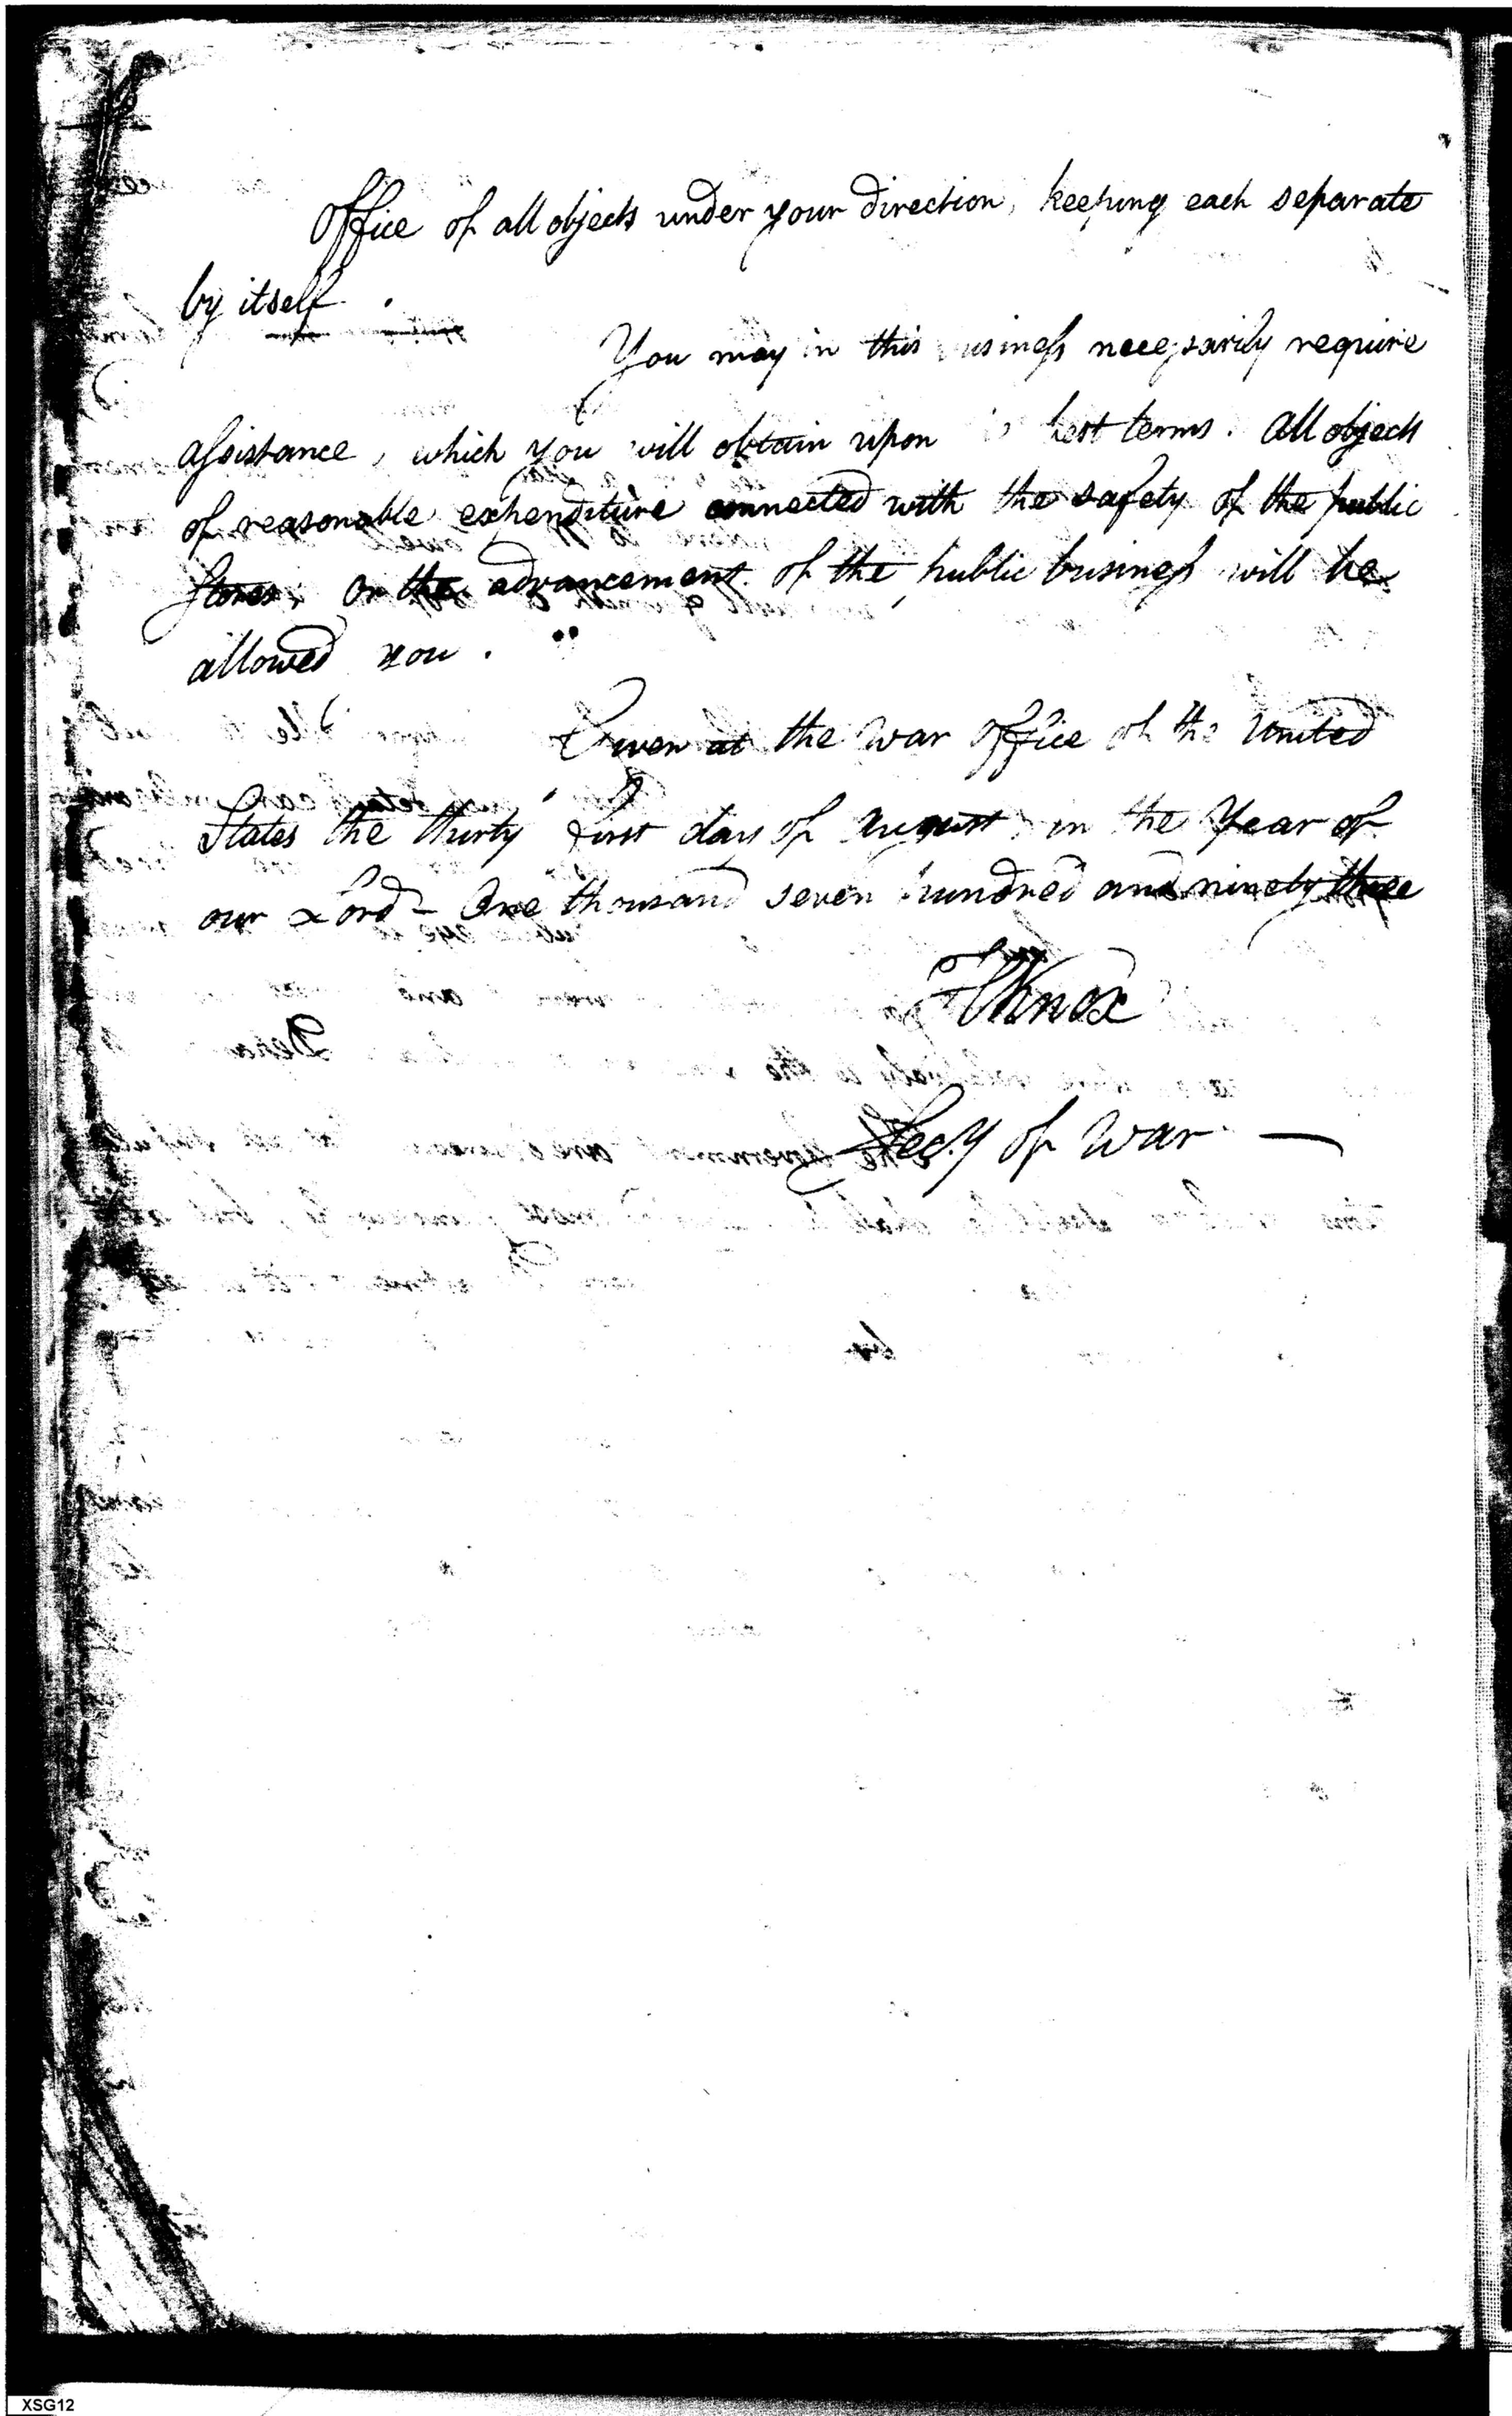 Office of all objects under your direction, keeping each separate
by itself.
You may in this usiness necessarily require
assistance, which you will obtain upon best terms. All objects
of reasonable expenditure connected with the safety of the public
Stores, or the advancement of the public business will be
allowed you.
Given at the War Office of the United
States the thirty first day of August, in the Year of
our Lord - One thousand seven hundred and ninety three
HKnox
Secy of War —
XSG12